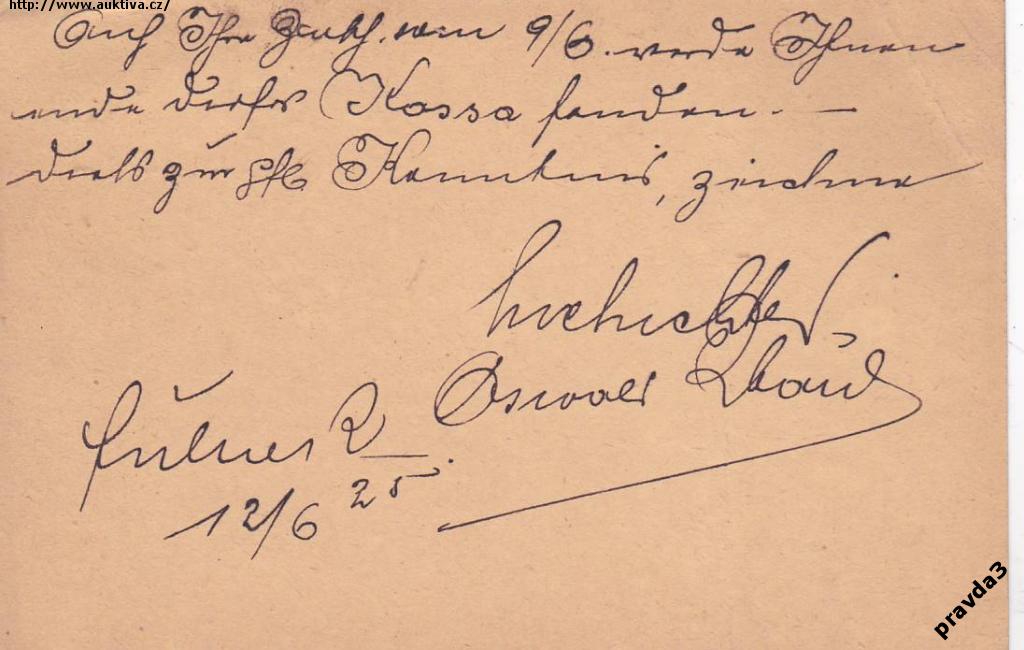 http://www.auktiva.cz/
Auf Ihre vom 9/6. werde Ihnen
ende dieses Kassa senden. —
Dies zur gfl Kenntnis, zeichne
Oswald
12/6 25
pravda3